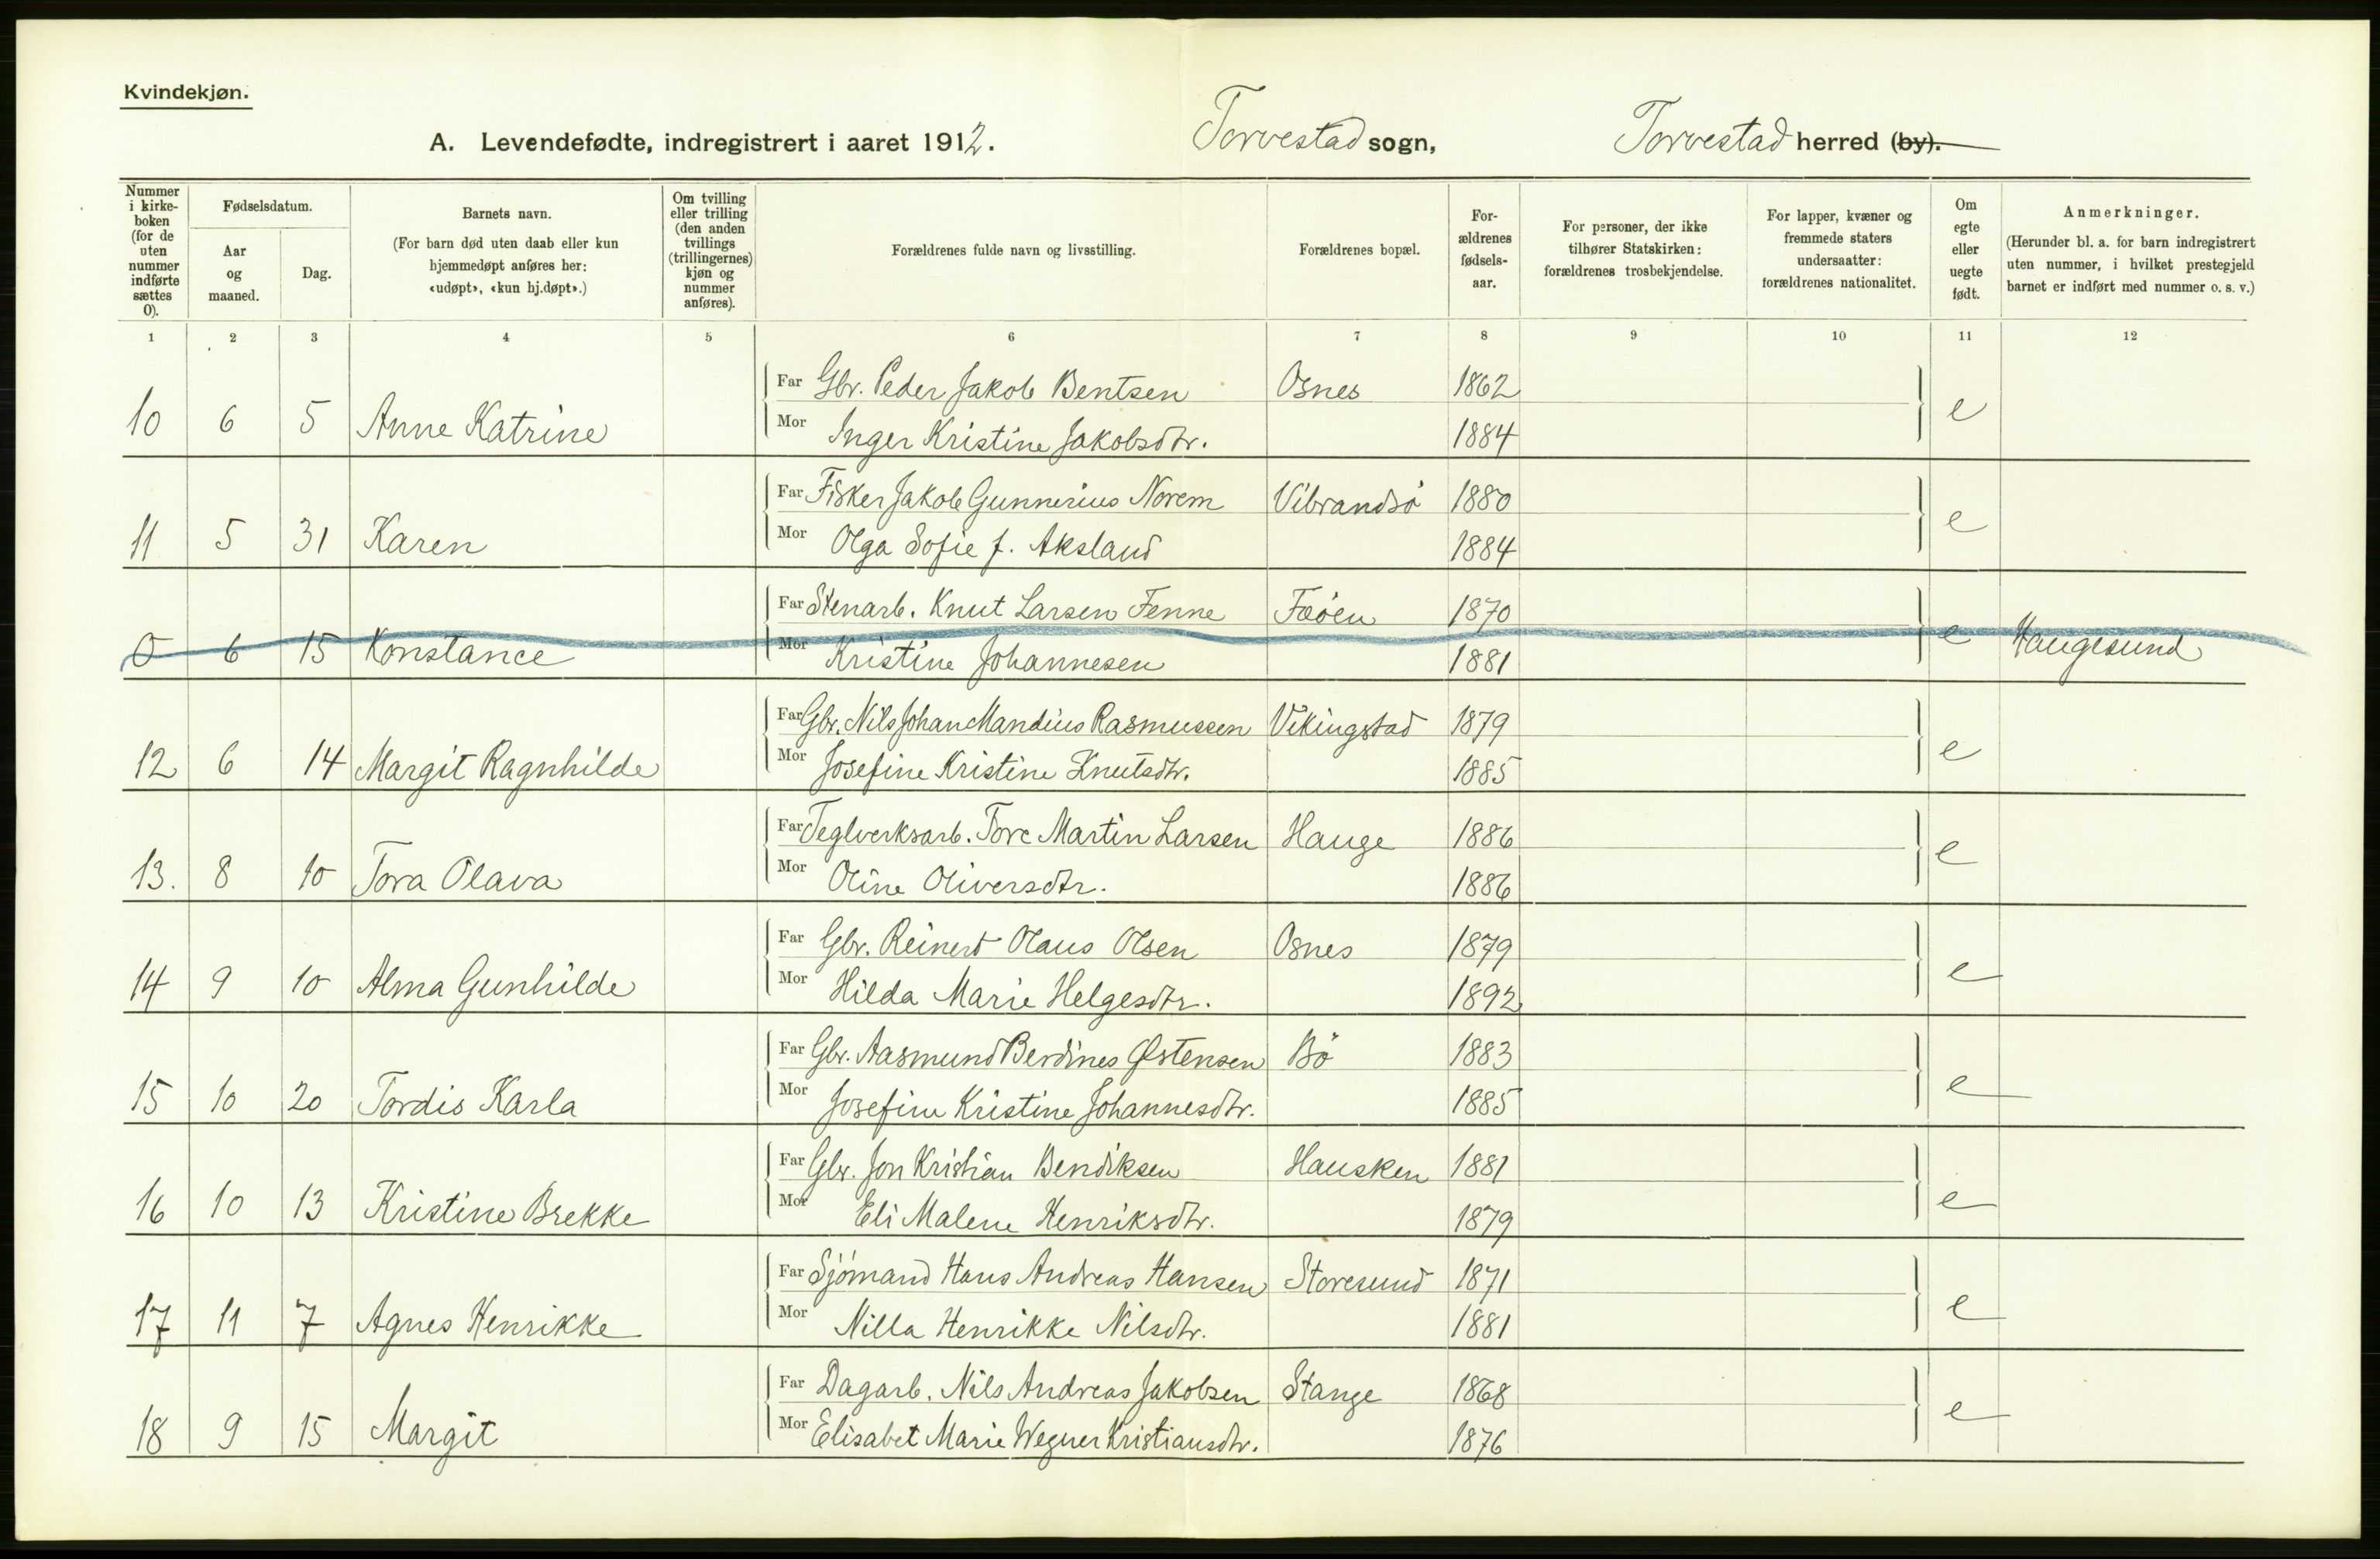 Kvindekjøn.
A. Levendefødte, indregistrert i aaret 1912. Torvestad sogn, Torvestad herred (by).
Nummer i kirke-boken (for de uten nummer indførte sættes 0).
Fødselsdatum.
Aar og maaned.
Dag.
Barnets navn.
(For barn død uten daab eller kun hjemmedøpt anføres her: «udøpt», «kun hj.døpt».)
Om tvilling eller trilling (den anden tvillings (trillingernes) kjøn og nummer anføres).
Forældrenes fulde navn og livsstilling.
Forældrenes bopæl.
For-ældrenes fødsels-aar.
For personer, der ikke tilhører Statskirken: forældrenes trosbekjendelse.
For lapper, kvæner og fremmede staters undersaatter: forældrenes nationalitet.
Om egte eller uegte født.
Anmerkninger.
(Herunder bl. a. for barn indregistrert uten nummer, i hvilket prestegjeld barnet er indført med nummer o. s. v.)
1 2 3 4 5 6 7 8 9 10 11 12
Far Gbr. Peder Jakob Bentsen Osnes 1862
10 6 5 Anne Katrine Mor Inger Kristine Jakobsdtr. 1884 e
Far Fisker Jakob Gunnerius Norem Vibrandsö 1880
11 5 31 Karen Mor Olga Sofie f. Aksland 1884 e
Far Stenarb. Knut Larsen Fenne Fæöen 1870
0 6 15 Konstance Mor Kristine Johannesen 1881 e Haugesund
Far Gbr. Nils Johan Mandius Rasmussen Vikingstad 1879
12 6 14 Margit Ragnhilde Mor Josefine Kristine Knutsdtr. 1885 e
Far Teglverksarb. Tore Martin Larsen Hauge 1886
13. 8 10 Tora Olava Mor Oline Oliversdtr. 1886 e
Far Gbr. Reinert Olaus Olsen Osnes 1879
14 9 10 Alma Gunhilde Mor Hilda Marie Helgesdtr. 1892 e
Far Gbr. Aasmund Berdines Østensen Bö 1883
15 10 20 Tordis Karla Mor Josefine Kristine Johannesdtr. 1885 e
Far Gbr. Jon Kristian Bendiksen Hausken 1881
16 10 13 Kristine Brekke Mor Eli Malene Henriksdtr. 1879 e
Far Sjömand Hans Andreas Hansen Storesund 1871
17 11 7 Agnes Henrikke Mor Nilla Henrikke Nilsdtr. 1881 e
Far Dagarb. Nils Andreas Jakobsen Stange 1868
18 9 15 Margit Mor Elisabet Marie Wegner Kristiansdtr. 1876 e